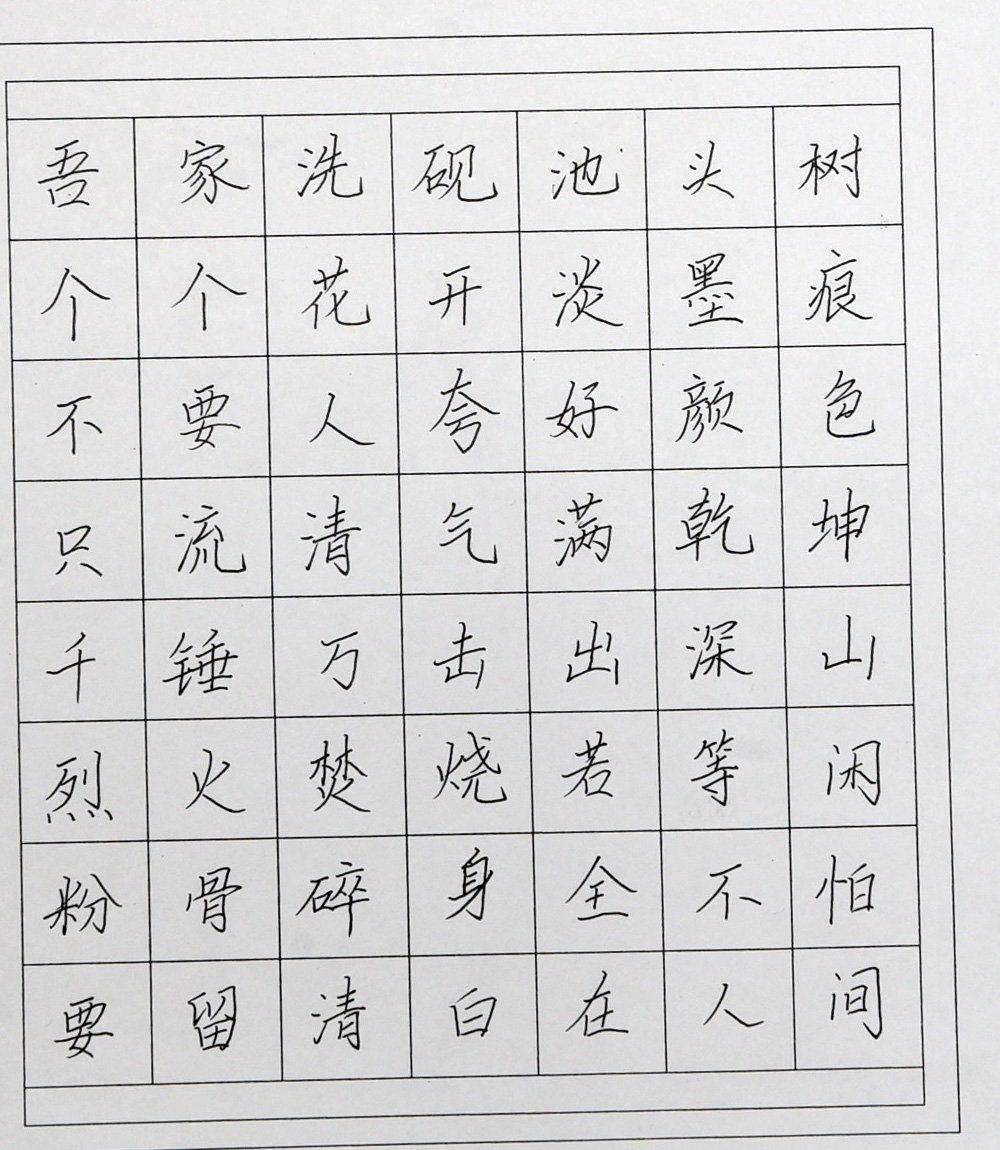 吾家洗砚池头树
个个花开淡墨痕
不要人夸好颜色
只流清气满乾坤
千锤万击出深山
烈火焚烧若等闲
粉骨碎身全不怕
要留清白在人间